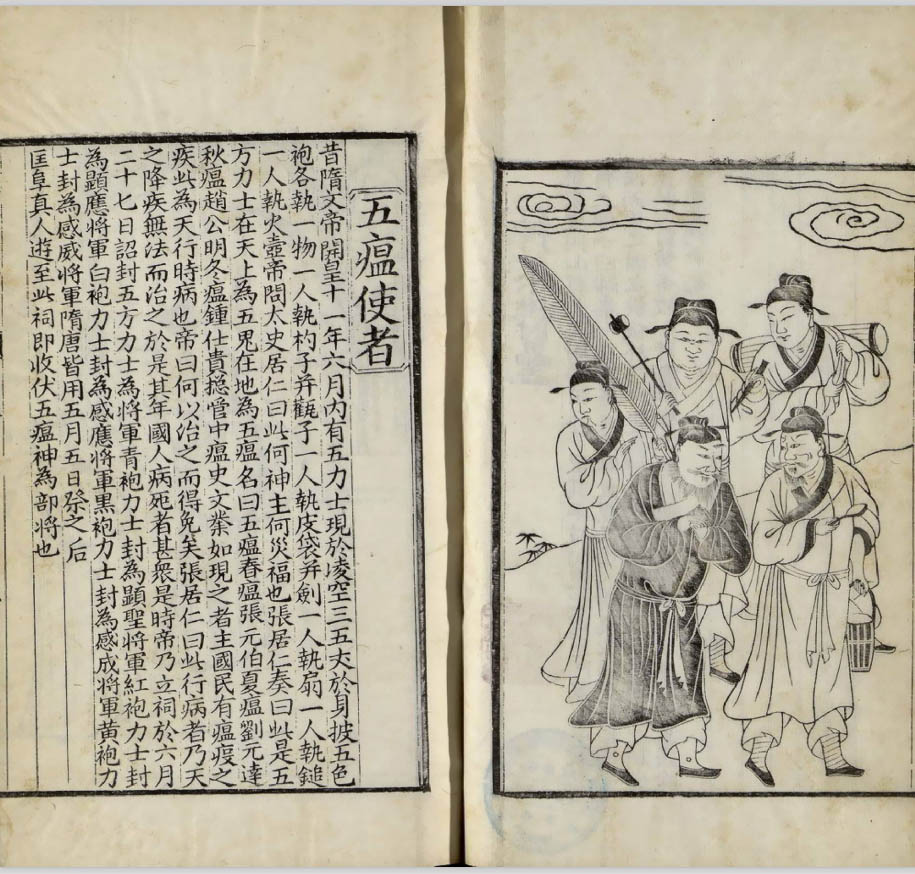 五瘟使者
昔隋文帝開皇十一年六月内有五力士現於凌空三五丈於身披五色
袍各執一物一人執杓子并鑵子一人執皮袋并劍一人執扇一人執鎚
一人執火壺帝問太史居仁曰此何神主何災福也張居仁奏曰此是五
方力士在天上為五鬼在地為五瘟名曰五瘟春瘟張元伯夏瘟劉元達
秋瘟趙公明冬瘟鍾仕貴揔管中瘟史文業如現之者主國民有瘟疫之
疾此為天行時病也帝曰何以治之而得免矣張居仁曰此行病者乃天
之降疾無法而治之於是其年國人病死者甚衆是時帝乃立祠於六月
二十七日詔封五方力士為將軍青袍力士封為顯聖將軍紅袍力士封
為顯應將軍白袍力士封為感應將軍黑袍力士封為感成將軍黄袍力
士封為感威將軍隋唐皆用五月五日祭之后
匡阜真人遊至此祠即收伏五瘟神為部將也